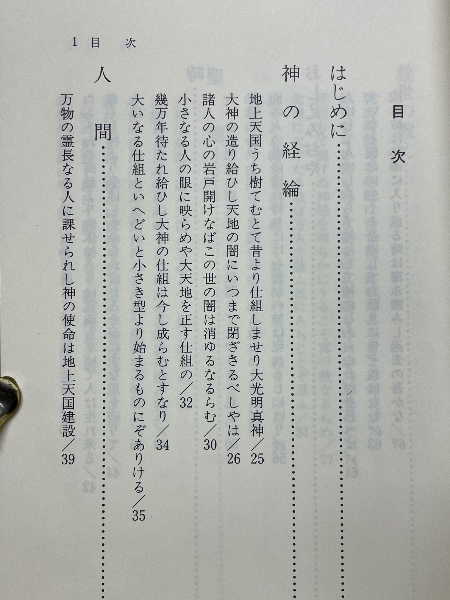 1 目 次
目 次
はじめに……………………………
神の経綸……………………
地上天国うち樹てむとて昔より仕組しませり大光明真神／25
大神の造り給ひし天地の闇にいつまで閉ざさるべしやは／26
諸人の心の岩戸開けなばこの世の闇は消ゆるなるらむ／30
小さなる人の眼に映らめや大天地を正す仕組の／32
幾万年待たれ給ひし大神の仕組は今し成らむとすなり／34
大いなる仕組といへどいと小さき型より始まるものにぞありける／35
人 間……………………………
万物の霊長なる人に課せられし神の使命は地上天国建設／39